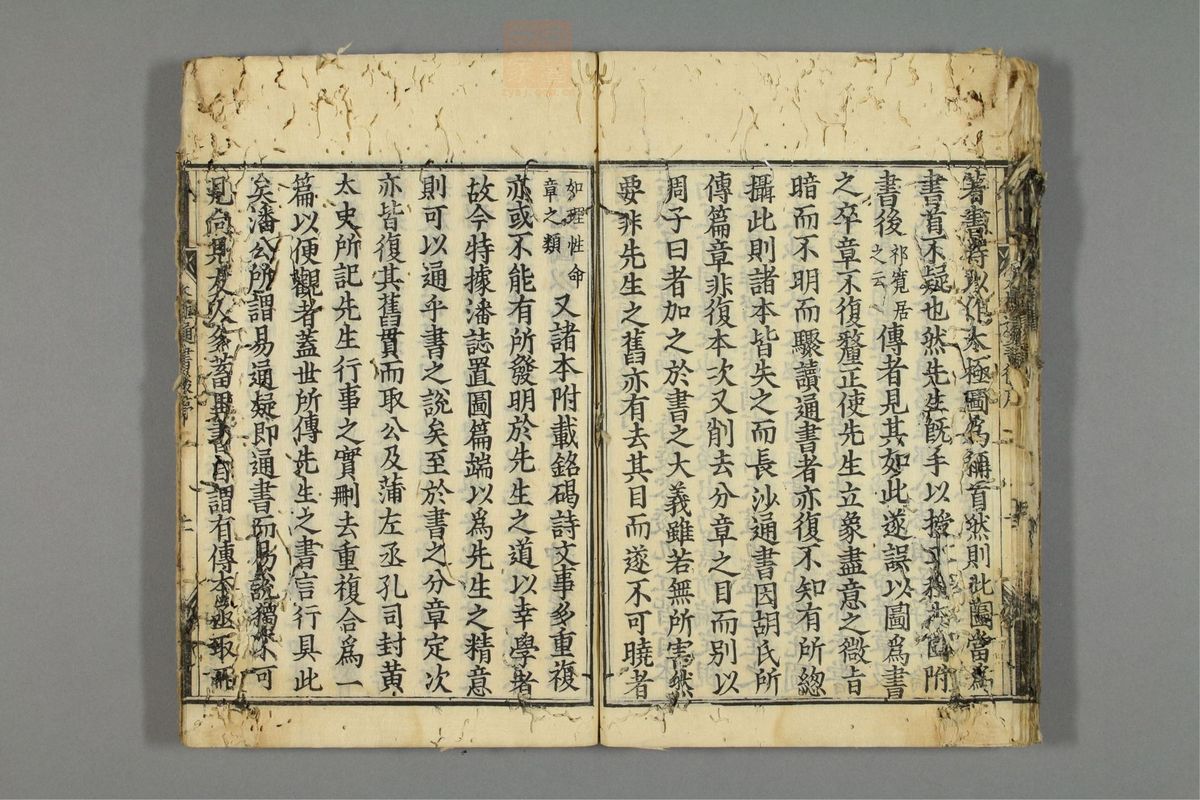 著書特以作太極圖為稱首然則此圖當為
書首不疑也然先生既手以授二程本因附
書後祁寬居之云傳者見其如此遂誤以圖爲書
之卒章不復釐正使先生立象盡意之微旨
暗而不明而驟讀通書者亦復不知有所總
攝此則諸本皆失之而長沙通書因胡氏所
傳篇章非復本次又削去分章之目而別以
周子曰者加之於書之大義雖若無所害然
要非先生之舊亦有去其目而遂不可曉者
如理性命章之類又諸本附載銘碣詩文事多重複
亦或不能有所發明於先生之道以幸學者
故今特據潘誌置圖篇端以爲先生之精意
則可以通乎書之說矣至於書之分章定次
亦皆復其舊貫而取公及蒲左丞孔司封黃
太史所記先生行事之實刪去重複合爲一
篇以便觀者蓋世所傳先生之書言行具此
矣潘公所謂易通疑即通書而易說獨不可
見向見友人多蓄異書自謂有傳本亟取而